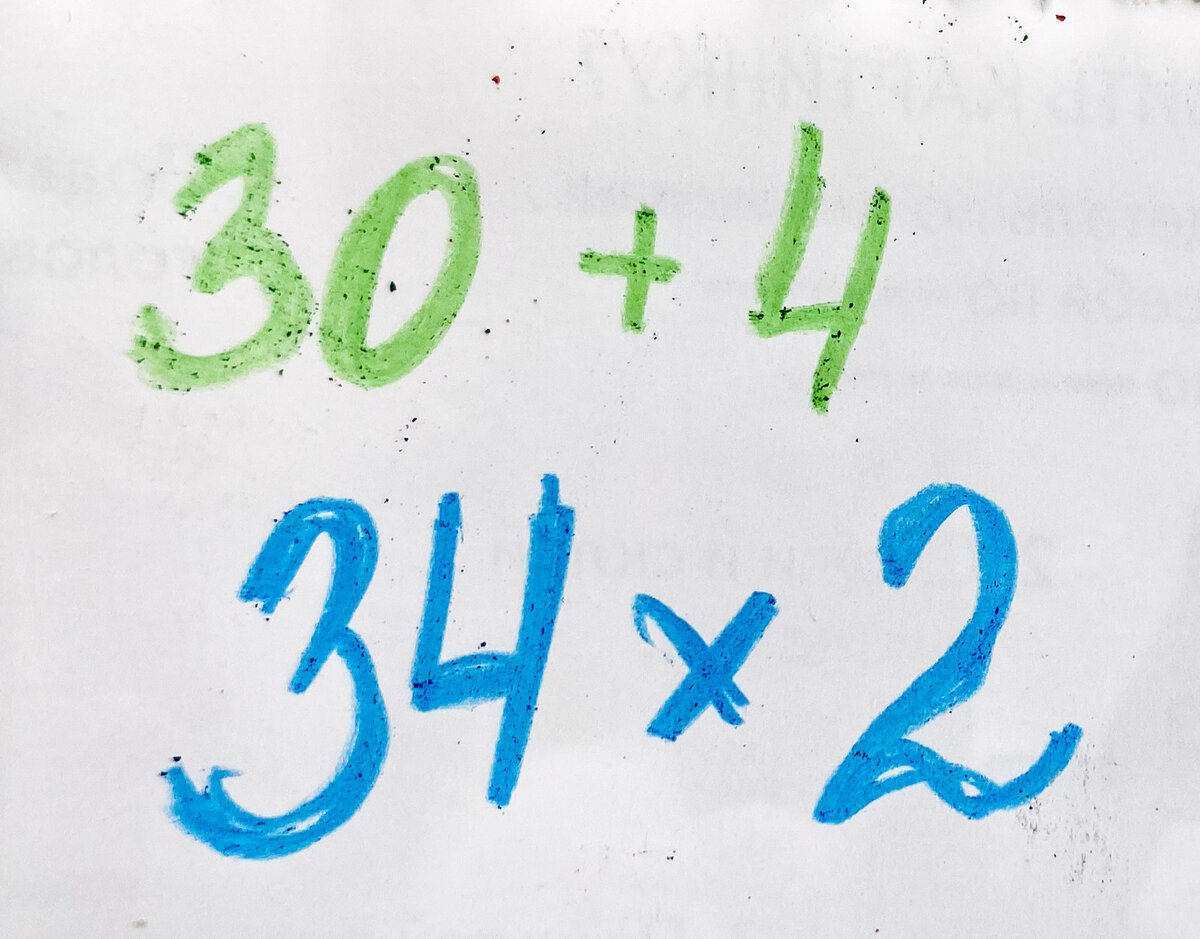 30 + 4
34 × 2